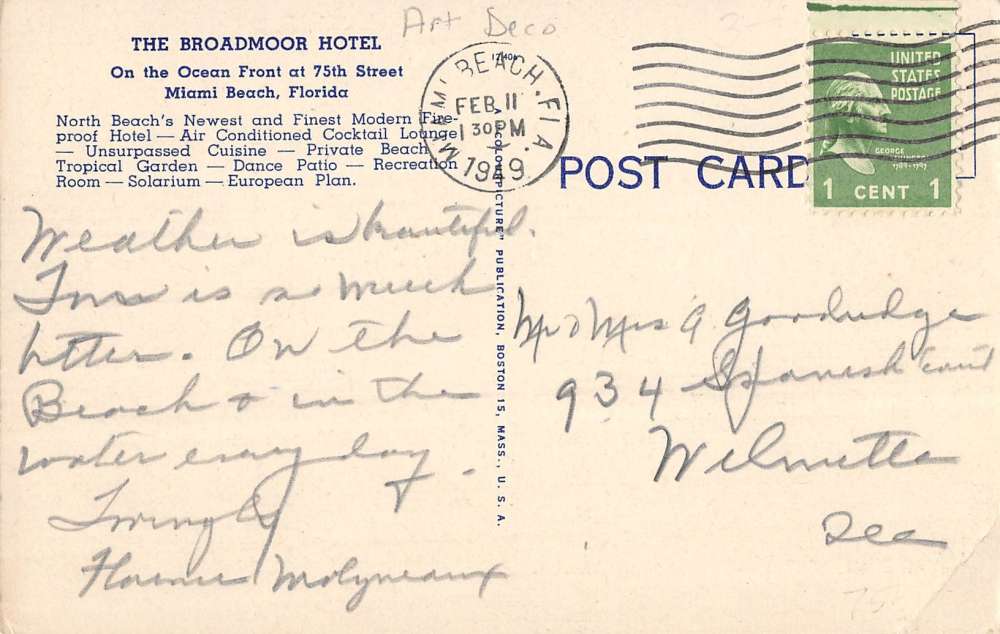 Art Deco
THE BROADMOOR HOTEL
On the Ocean Front at 75th Street
Miami Beach, Florida
North Beach's Newest and Finest Modern Fire-
proof Hotel — Air Conditioned Cocktail Lounge
— Unsurpassed Cuisine — Private Beach —
Tropical Garden — Dance Patio — Recreation
Room — Solarium — European Plan.
MIAMI BEACH, FLA.
FEB 11
1 30 PM
1949
POST CARD
UNITED
STATES
POSTAGE
GEORGE
WASHINGTON
1789-1797
1 CENT 1
PICTURE" PUBLICATION, BOSTON 15, MASS., U. S. A.
Weather is beautiful.
is so much
better. On the
Beach & in the
water every day.
Florence Molyneaux
Mr & Mrs G Goodridge
934 Spanish Court
Wilmette